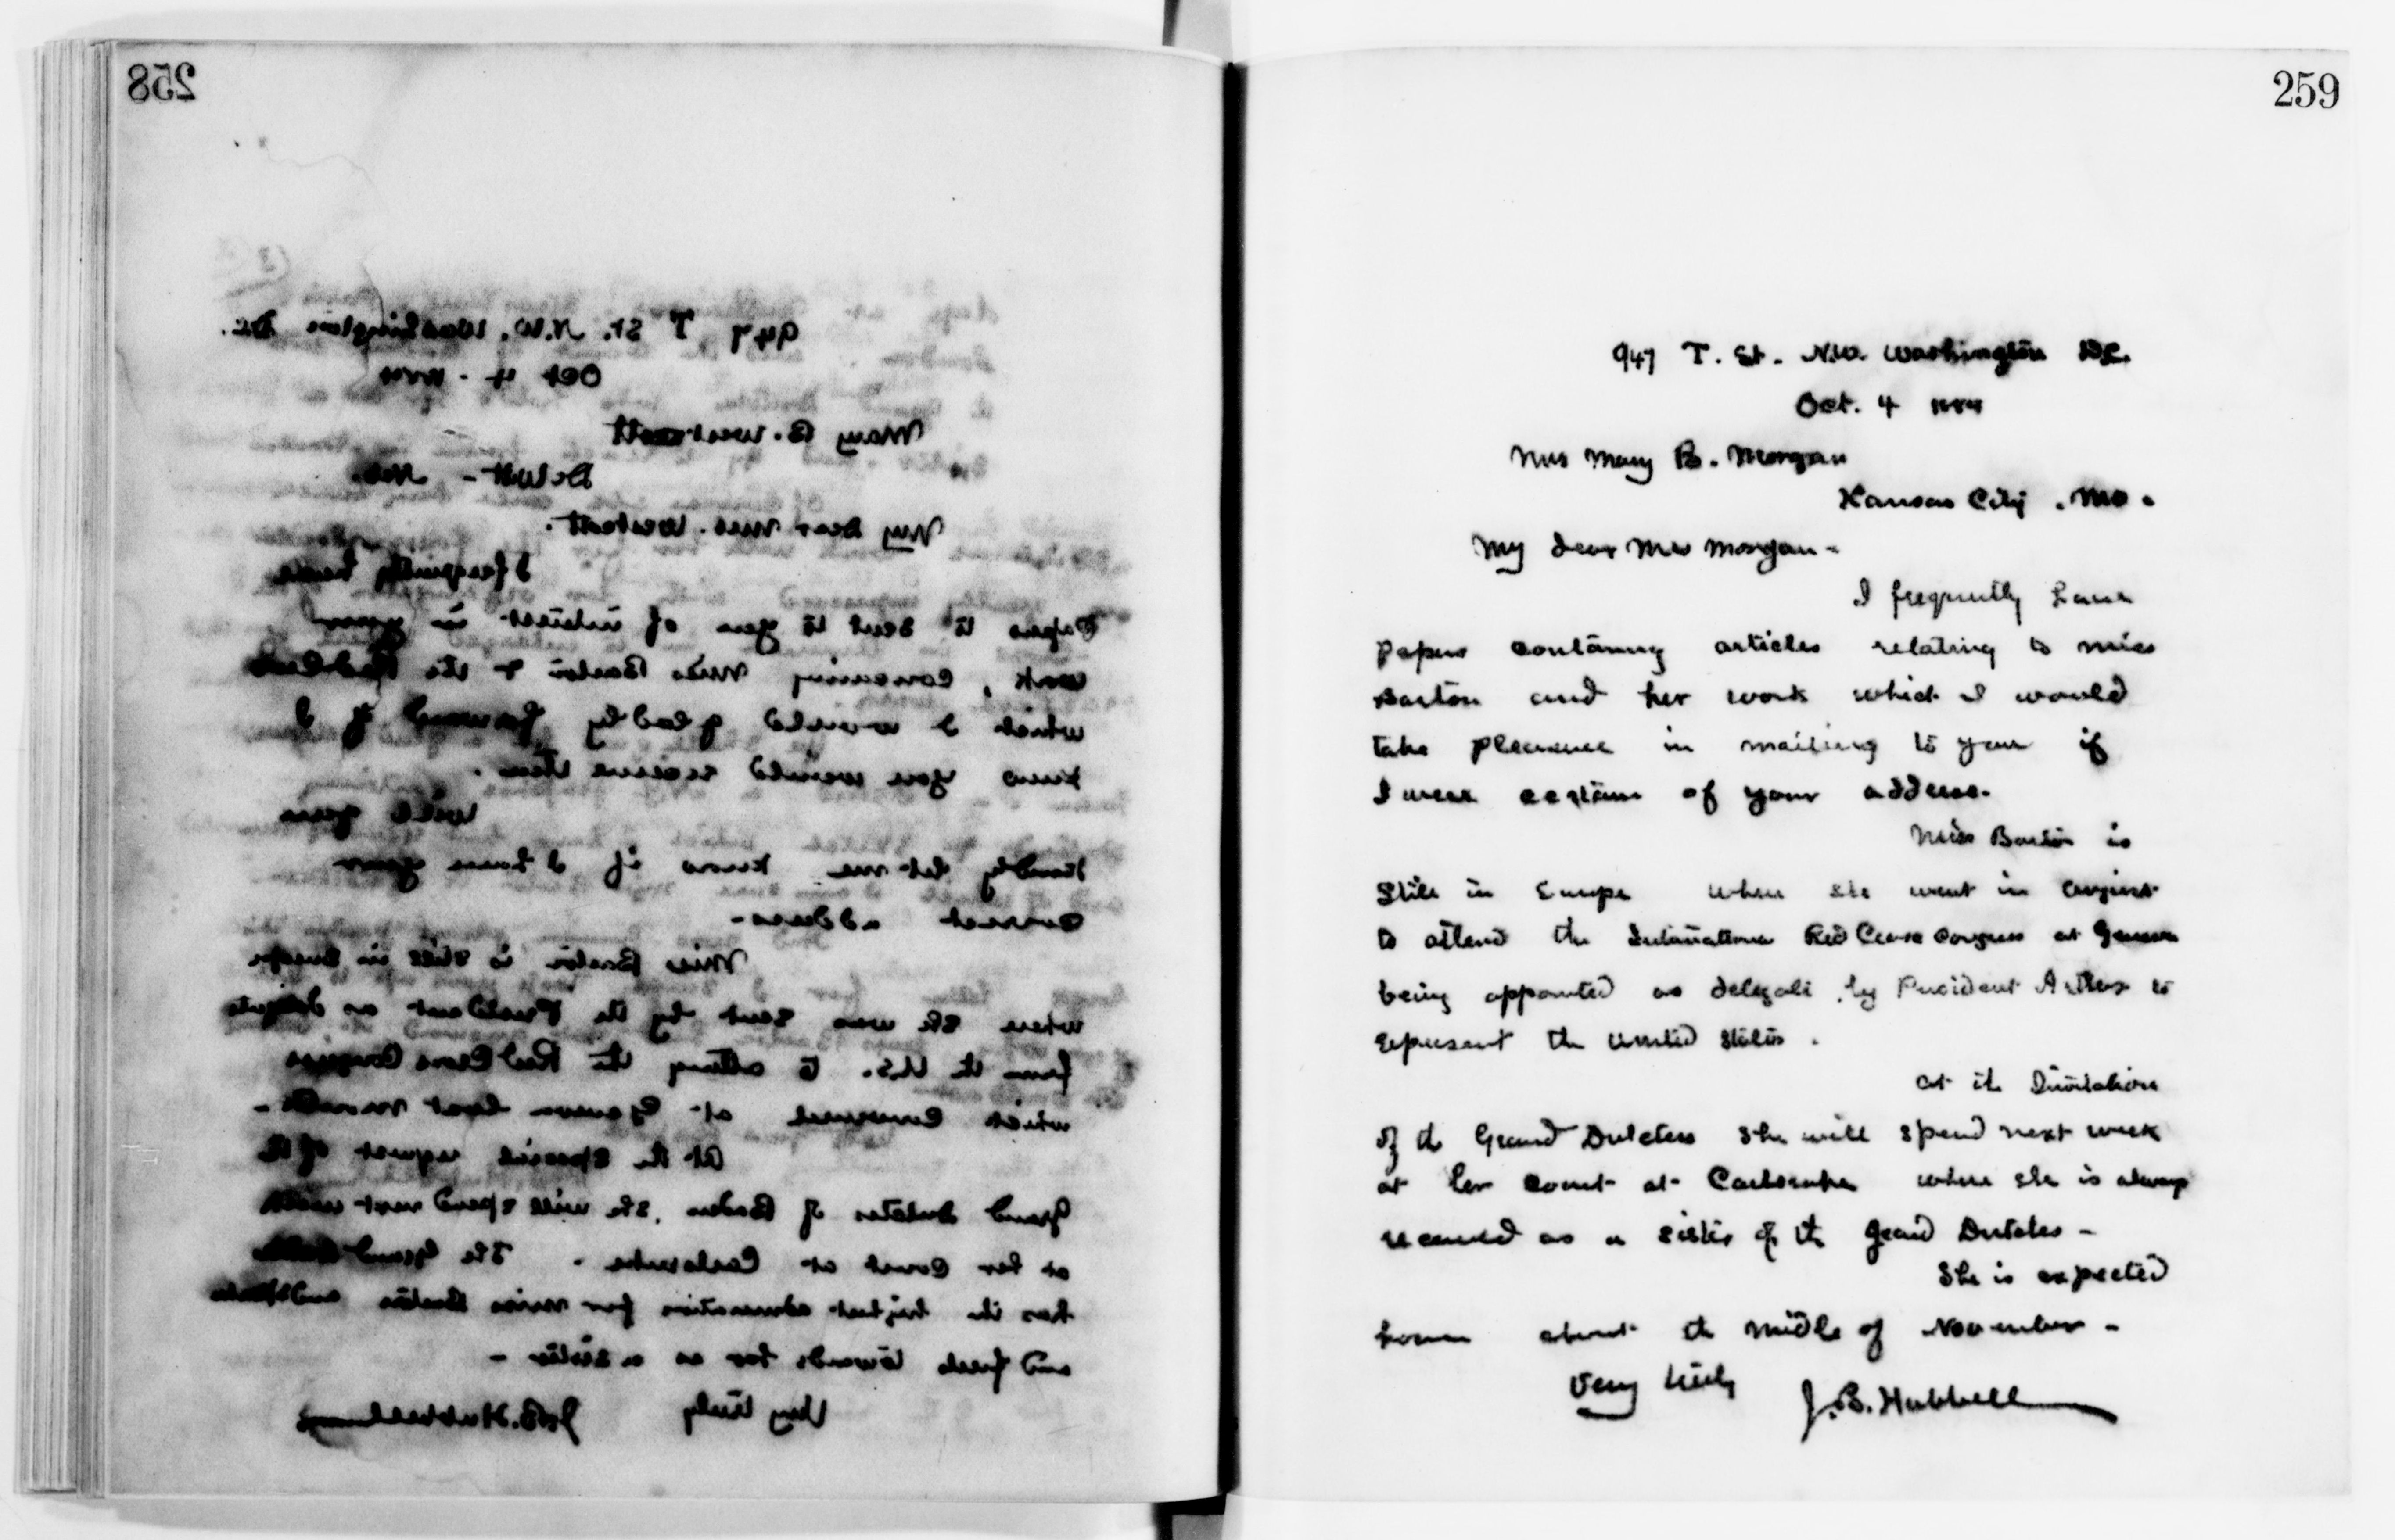 258
947 T St. N.W. Washington D.C.
Oct 4 - 1884
Mary B. Westcott
DeWitt - Neb.
My Dear Mrs. Westcott.
I frequently have
Papers to sent to you of interest in your
work, concerning Miss Barton & the Red Cross
which I would gladly forward if I
knew you would receive them.
Will you
kindly let me know if I have your
correct address -
Miss Barton is still in Europe
where she was sent by the President as delegate
from the U.S. to attend the Red Cross Congress
which convened at Geneva last month -
At the special request of the
Grand Dutches of Baden, she will spend next week
at her Court at Carlsruhe. The Grand
has the highest admiration for Miss Barton
and feels towards her as a sister -
Very truly J.B. Hubbell
259
947 T. St. N.W. Washington DC.
Oct. 4 1884
Mrs Mary B. Morgan
Kansas City . Mo.
My dear Mrs Morgan -
I frequently have
papers containing articles relating to Miss
Barton and her work which I would
take pleasure in mailing to you if
I were certain of your address.
Miss Barton is
still in Europe where she went in August
to attend the International Red Cross Congress at Geneva
being appointed as delegate by President Arthur to
represent the United States.
At the Invitation
of the Grand Dutchess she will spend next week
at her Court at Carlsruhe where she is always
received as a sister of the Grand Dutches -
She is expected
home about the middle of November -
Very truly J.B. Hubbell